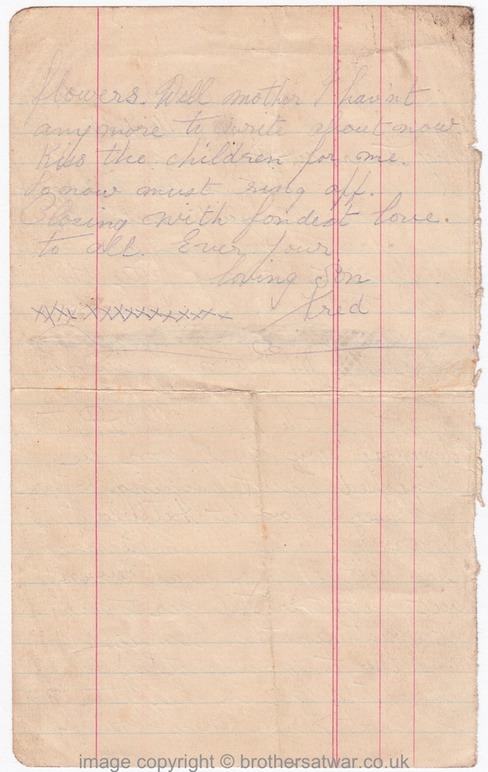 flowers. Well mother I hav'nt
any more to write about now
Kiss the children for me.
So now must ring off.
Closing with fondest love.
to all. Ever your
loving Son
Fred
xxxx xxxxxxxxxx
image copyright © brothersatwar.co.uk